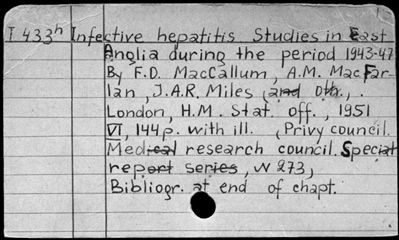 I 433h Infective hepatitis Studies in East
Anglia during the period 1943-47
By F.D. MacCallum, A.M. MacFar-
lan, J.A.R. Miles (and oth., .
London, H.M. Stat. off., 1951
VI, 144p. with ill. (Privy council.
Medical research council. Special
report series, N 273)
Bibliogr. at end of chapt.